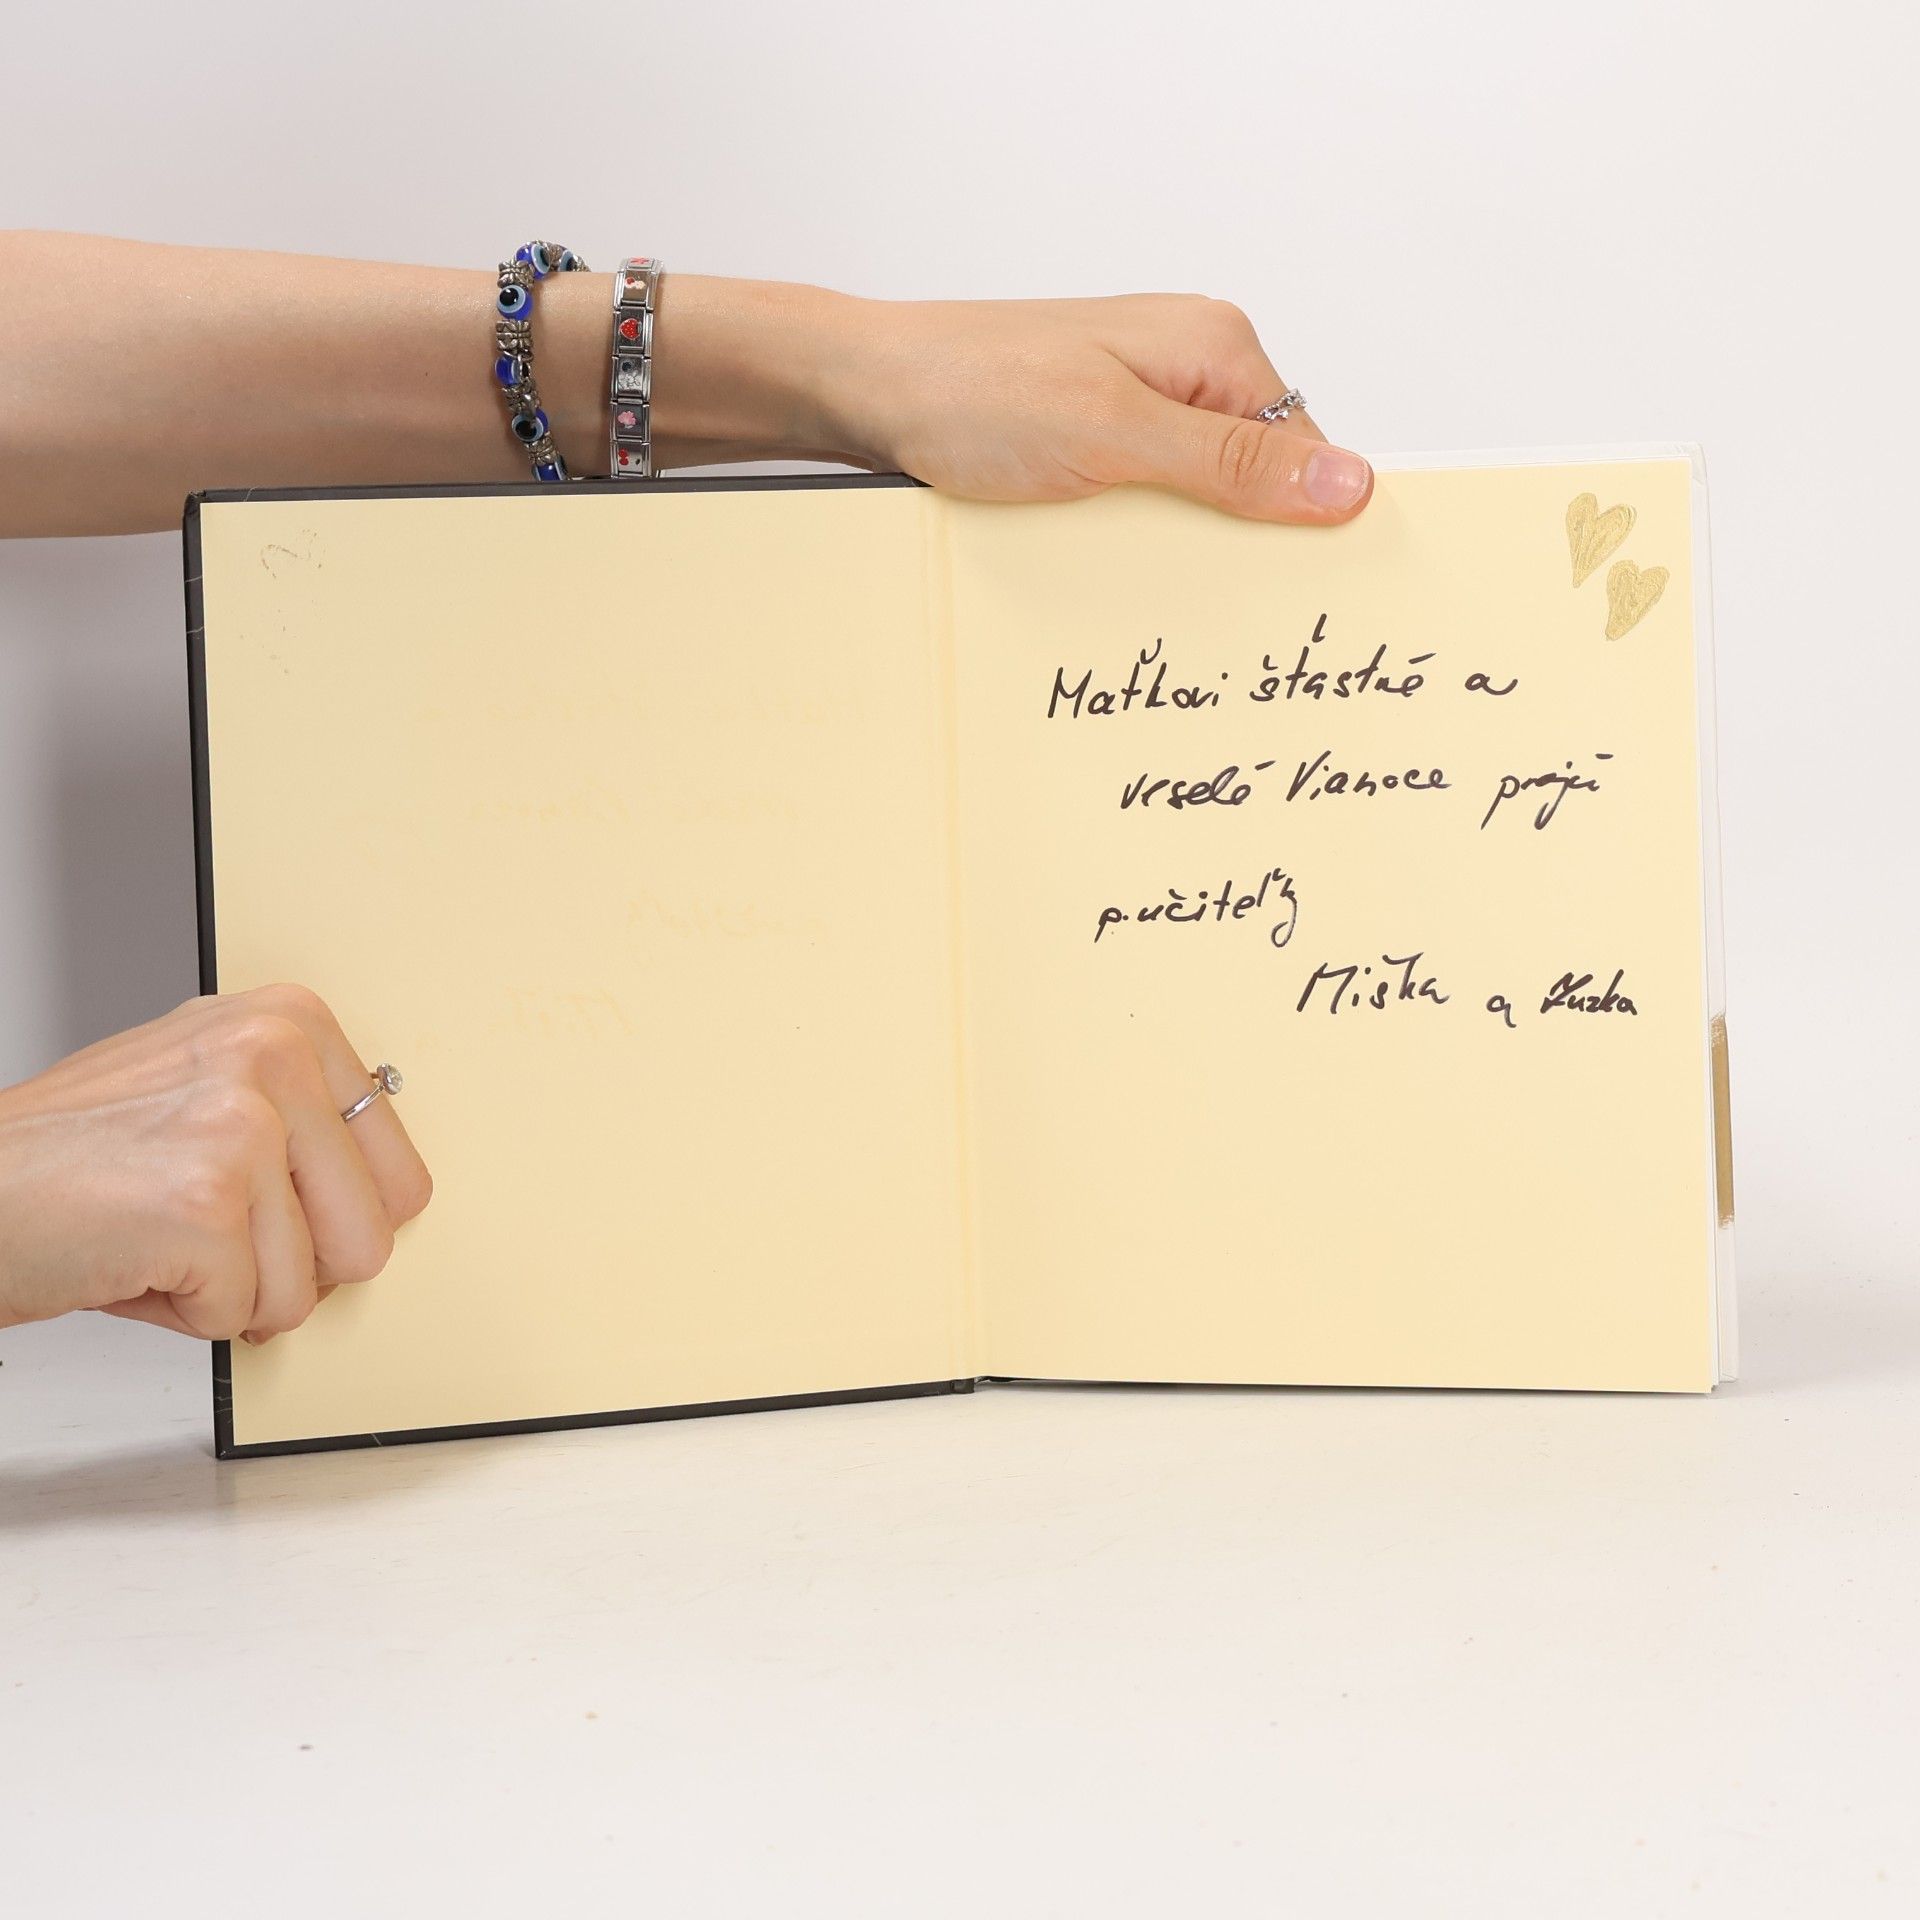 Maťkovi šťastné a
veselé Vianoce prajú
p. učiteľky
Miška a Zuzka